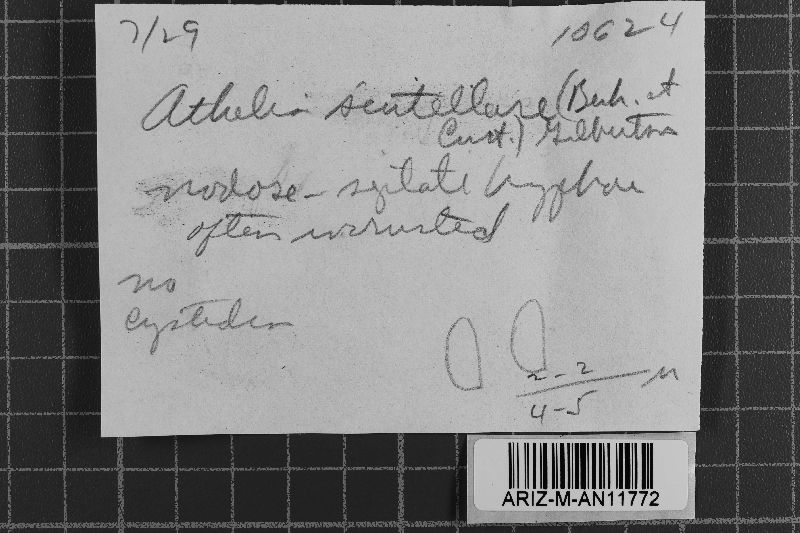 7/29 10624
Athelia scutellare (Berk. et
Curt.) Gilbertson
nodose-septate hyphae
often incrusted
no
cystidia
2-2
4-5 µ
ARIZ-M-AN11772